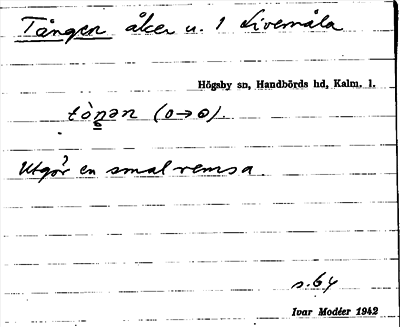 Tången åker u. 1 Livemåla
Högsby sn, Handbörds hd, Kalm. l.
tòŋən (o→ɵ).
Utgör en smal remsa.
s. 64
Ivar Modéer 1942